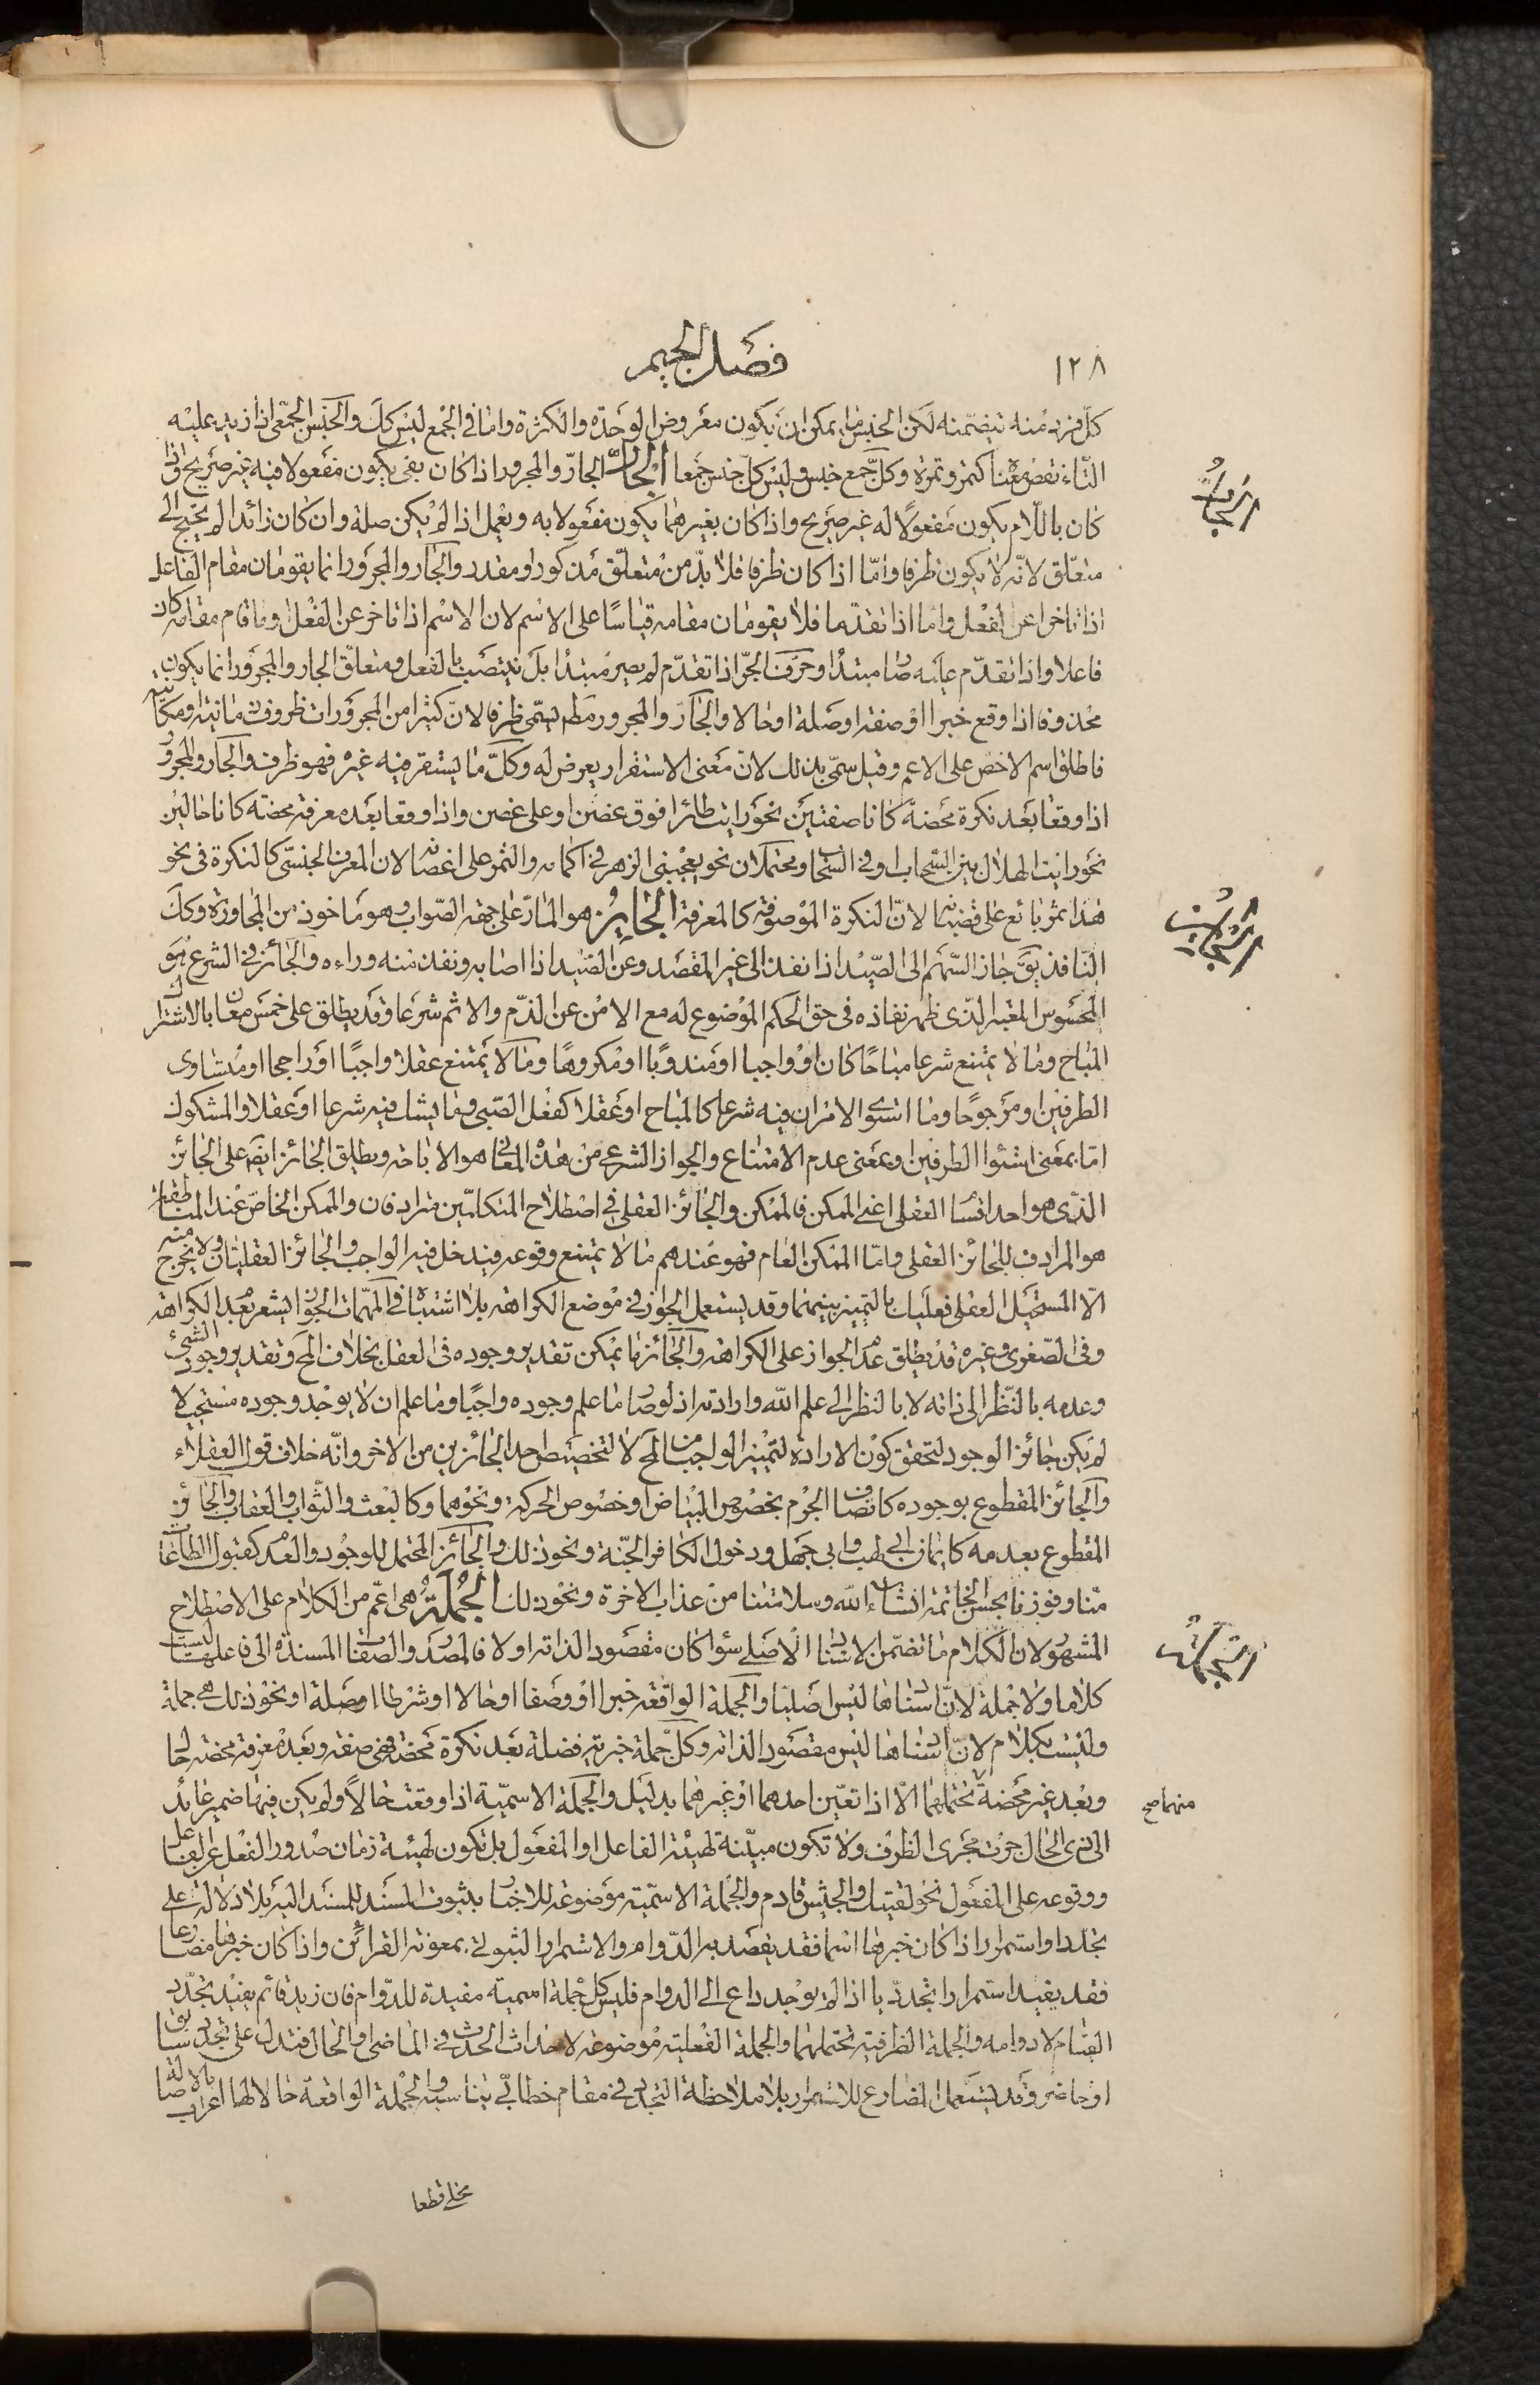 ١٢٨
فصل الجيم
كل فرد منه تتضمنه لكن الجنس ما يمكن ان يكون معروض الوحدة والكثرة واما في الجمع ليس كك والجنس الجمعى اذا زيد عليه
التاء نقص معناه كتمر وتمرة وكل جمع جنس وليس كل جنس جمعا الجار الجار والمجرور اذا كان بفى يكون مفعولا فيه غير صريح واذا
كان باللام يكون مفعولا له غير صريح واذا كان بغيرهما يكون مفعولا به ويعمل اذا لم يكن صلة وان كان زائدا لم يحتج الى
متعلق لانه لا يكون ظرفا واما اذا كان ظرفا فلا بد من متعلق مذكور او مقدر والجار والمجرور انما يقومان مقام الفاعل
اذا تاخرا عن الفعل واما اذا تقدما فلا يقومان مقامه قياسا على الاسم لان الاسم اذا تاخر عن الفعل وما قام مقامه كان
فاعلا واذا تقدم عليه صار مبتدأ وحرف الجر اذا تقدم لم يصير مبتدأ بل ينتصب بالفعل ومتعلق الجار والمجرور انما يكون
محذوفا اذا وقع خبرا او صفة او صلة او حالا والجار والمجرور مط يسمى ظرفا لان كثيرا من المجرورات ظروف زمانية ومكانية
فاطلق اسم الاخص على الاعم وقيل سمى بذلك لان معنى الاستقرار يعرض له وكل ما يستقر فيه غيره فهو ظرف والجار والمجرور
اذا وقعا بعد نكرة محضة كانا صفتين نحو رايت طائرا فوق غصن او على غصن واذا وقعا بعد معرفة محضة كانا حالين
نحو رايت الهلال بين السحاب او في السحاب ومحتملان نحو يعجبنى الزهر في اكمامه والثمر على اغصانه لان المعرف الجنسى كالنكرة في نحو
هذا ثمر يانع على قضبانه لان النكرة الموصوفة كالمعرفة الجائز هو المار على جهة الصواب وهو ماخوذ من المجاوزة وكك
النافذ يق جاز السهم الى الصيد اذا نفذ الى غير المقصد وعن الصيد اذا اصابه ونفذ منه وراءه والجائز في الشرع هو
المحسوس المعتبر الذى ظهر نفاذه في حق الحكم الموضوع له مع الامن عن الذم والاثم شرعا وقد يطلق على خمس معان بالاشتراك
المباح وما لا يمتنع شرعا مباحا كان او واجبا او مندوبا او مكروها وما لا يمتنع عقلا واجبا او راجحا او متساوى
الطرفين او مرجوحا وما استوى الامران فيه شرعا كالمباح او عقلا كفعل الصبى وما يشك فيه شرعا او عقلا والمشكوك
اما بمعنى استواء الطرفين او بمعنى عدم الامتناع والجواز الشرعى من هذه المعانى هو الاباحة ويطلق الجائز ايض على الجائز
الذى هو احد اقسام العقلى اعنى الممكن فالممكن والجائز العقلى في اصطلاح المتكلمين مترادفان والممكن الخاص عند المناطقة
هو المرادف للجائز العقلى واما الممكن العام فهو عندهم ما لا يمتنع وقوعه فيدخل فيه الواجب والجائز العقليان ولا يخرج منه
الا المستحيل العقلى فعليك بالتمييز بينهما وقد يستعمل الجواز في موضع الكراهة بلا اشتباه في المهمات الجواز يشعر بعد الكراهة
وفى الصغرى وغيره قد يطلق عدم الجواز على الكراهة والجائز ما يمكن تقدير وجوده في العقل بخلاف المح وتقدير وجود الشئ
وعدمه بالنظر الى ذاته لا بالنظر الى علم الله وارادته اذ لو صار ما علم وجوده واجبا وما علم ان لا يوجد وجوده مستحيلا
لم يكن جائز الوجود لتحقق كون الارادة لتمييز الواجب من المح لا لتخصيص احد الجائزين من الاخر وانه خلاف قول العقلاء
والجائز المقطوع بوجوده كاتصاف الجرم بخصوص البياض او خصوص الحركة ونحوهما وكالبعث والثواب والعقاب والجائز
المقطوع بعدمه كايمان ابى لهب وابى جهل ودخول الكافر الجنة ونحو ذلك والجائز المحتمل للوجود والعدم كقبول الطاعات
منا وفوزنا بحسن الخاتمة انشاء الله وسلامتنا من عذاب الاخرة ونحو ذلك الجملة هى اعم من الكلام على الاصطلاح
المشهور لان الكلام ما تضمن الاسناد الاصلى سواء كان مقصودا لذاته او لا فالمصدر والصفات المسندة الى فاعلها ليست
كلاما ولا جملة لان اسنادها ليس اصليا والجملة الواقعة خبرا او وصفا او حالا او شرطا او صلة او نحو ذلك هى جملة
وليست بكلام لان اسنادها ليس مقصودا لذاته وكل جملة خبرية فضلة بعد نكرة محضة فهى صفة وبعد معرفة محضة حال
وبعد غير محضة تحتملهما الا اذا تعين احدهما او غيرهما بدليل والجملة الاسمية اذا وقعت حالا ولم يكن فيها ضمير عائد
الى ذى الحال جرت مجرى الظرف ولا تكون مبينة لهيئة الفاعل او المفعول بل تكون لهيئة زمان صدور الفعل عن الفاعل
ووقوعه على المفعول نحو لقيتك والجيش قادم والجملة الاسمية موضوعة للاخبار بثبوت المسند للمسند اليه بلا دلالة على
تجدد او استمرار اذا كان خبرها اسما فقد يقصد به الدوام والاستمرار الثبوتى بمعونة القرائن واذا كان خبرها مضارعا
فقد يفيد استمرارا تجدديا اذا لم يوجد داع الى الدوام فليس كل جملة اسمية مفيدة للدوام فان زيد قائم يفيد تجدد
القيام لا دوامه والجملة الظرفية تحتملهما والجملة الفعلية موضوعة لاحداث الحدث في الماضى او الحال فتدل على تجدد سابق
او حاضر وقد يستعمل المضارع للاستمرار بلا ملاحظة التجدد في مقام خطابى يناسبه والجملة الواقعة حالا لها اعراب بالاصالة
محلى قطعا
الجار
الجائز
الجملة
منهما صح